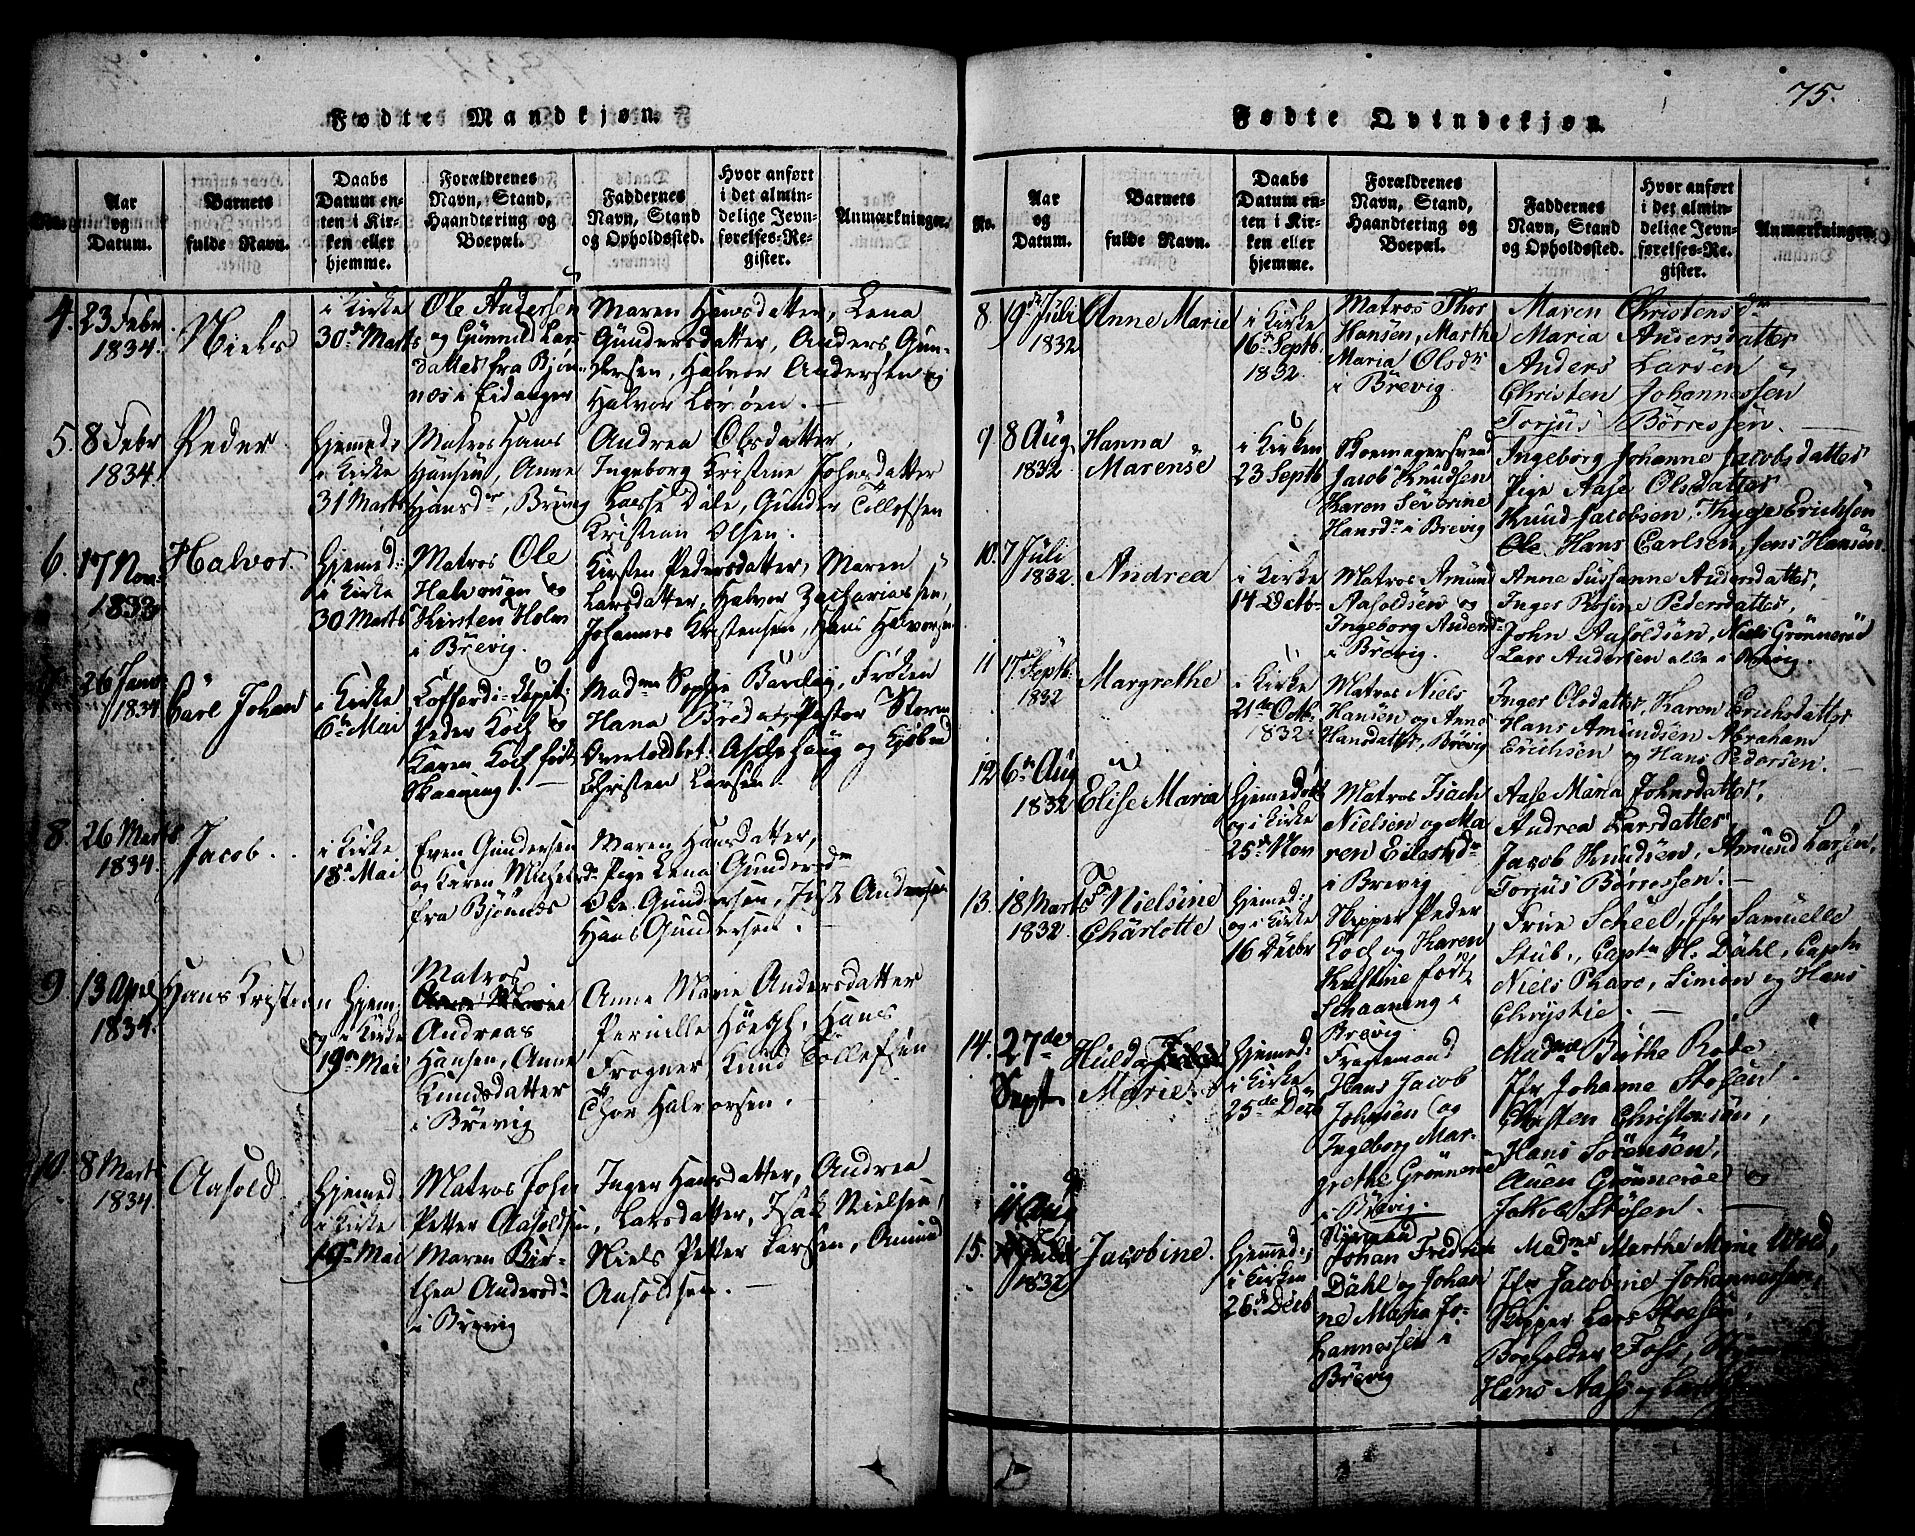 75.
Fødte Mandkjøn.
No.
Aar
og
Datum.
Barnets
fulde Navn.
Daabs
Datum en-
ten i Kir-
ken eller
hjemme.
Forældrenes
Navn, Stand,
Haandtering og
Boepæl.
Faddernes
Navn, Stand
og Opholdssted.
Hvor anført
i det almin-
delige Jevn-
førelses-Re-
gister.
Anmærkninger.
4. 23 Febr
1834.
Niels
i Kirke
30d Marts
Ole Andersen
og Gunnild Lar-
datter fra Bjøn-
nes i Eidanger
Maren Hansdatter, Lena
Gundersdatter, Anders Gun-
dersen, Halvor Andersen og
Halvor
5. 8 Febr
1834.
Peder
Hjemed:
i Kirke
31 Marts
Matros Hans
Hansen, Anne
Hansdr, Brevig
Andrea Olsdatter,
Ingeborg Kristine Johnsdatter
Lasse Dale, Gunder Tollefsen
Kristian Olsen.
6. 17 Nov
1833
Halvor
Hjemed:
i Kirke
30 Marts
Matros Ole
Halvorsen og
Kirsten Holm
i Brevig.
Kirsten Pedersdatter, Maren
Larsdatter, Halvor Zachariassen,
Johannes Kristensen, Hans Halvorsen
26 Janr
1834
Carl Johan
i Kirke
6te Mai
Cofferdi-Capit:
Peder Koch og
Karen Koch født
Skaaning.
Madme Sophie Barclay, Frøken
Hana Breda, Pastor Storm
Overtoldbet: Aschehoug og Kjøbmd
Christen Larsen.
8. 26 Marts
1834.
Jacob.
i Kirke
18de Mai
Even Gundersen
og Karen Michelsd:
fra Bjønnes
Maren Hansdatter,
Pige Lena Gundersdr
Ole Gundersen, Just Andersen
Hans Gundersen.
9. 13 Apr
1834.
Hans Kristian
Hjem:
og i Kirke
19de Mai
Matros
Andreas
Hansen, Anne
Knudsdatter
i Brevig
Anne Marie Andersdatter
Pernille Höegh, Hans
Frogner Knud Tollefsen
Thor Halvorsen.
10. 8 Marts
1834.
Aasold
Hjemed:
i Kirke
19de Mai
Matros John
Petter Aasoldsen,
Maren Bir-
thea Andersd:
i Brevig
Inger Hansdatter, Andrea
Larsdatter, Isak Nielsen,
Niels Petter Larsen, Amund
Aasoldsen.
Fødte Qvindekjøn.
No.
Aar
og
Datum.
Barnets
fulde Navn.
Daabs
Datum en-
ten i Kir-
ken eller
hjemme.
Forældrenes
Navn, Stand,
Haandtering og
Boepæl.
Faddernes
Navn, Stand
og Opholdssted.
Hvor anført
i det almin-
delige Jevn-
førelses-Re-
gister.
Anmærkninger.
8. 19de Juli
1832
Anne Marie
i Kirke
16de Septb.
1832.
Matros Thor
Hansen, Marthe
Maria Olsdr
i Brevig.
Maren Christensdr
Maria Andersdatter
Anders Larsen
Christen Johannessen
Torjus Börressen.
9 8 Aug
1832
Hanna
Marense
i Kirken
23 Septb
Skomagersvend
Jacob Knudsen
Karen Severine
Hansdr i Brevig
Ingeborg Johanne Jacobsdatter
Pige Aase Olsdatter
Knud Jacobsen, Trygge Erichsen
Ole Hans Carlsen, Jens Hansen
10. 7 Juli
1832.
Andrea
i Kirke
14 Octb.
Matros Amund
Aasoldsen og
Ingeborg Andersd:
i Brevig.
Anne Sussanne Andersdatter,
Inger Rosine Pedersdatter,
John Aasoldsen, Niels Grønnerød
Lars Andersen alle i Brevig.
11 17 Septb.
1832
Margrethe
i Kirke
21de Octb.
1832.
Matros Niels
Hansen og Anne
Hansdatter, Brevig
Inger Olsdatter, Karen Erichsdatter
Hans Amundsen Abraham
Erichsen og Hans Pedersen.
12 6te Aug
1832
Elise Maria
Hjemedøbt
og i Kirke
25de Nov
Matros Isach
Nielsen og Ma-
ren Eilertsdr
i Brevig
Aase Maria Johnsdatter,
Andrea Larsdatter,
Jacob Knudsen, Amund Larsen,
Torjus Börressen.
13. 18 Marts
1832.
Nielsine
Charlotte
Hjemed:
og i Kirke
16 Decbr
Skipper Peder
Koch og Karen
Kirstine født
Schaaning i
Brevig.
Frue Scheel, Jfr Samuelle
Stub., Captn H. Dahl, Captn
Niels Pharo, Simon og Hans
Chrystie.
14. 27de
Sept
Hulda
Marie
Hjemed:
i Kirke
25de Dec
Fragtemand
Hans Jacob
Johnsen og
Ingeborg Mar-
grethe Grønnerød
i Brevig.
Madme Birthe Rode
Jfr Johanne Stosen.
Christen Christensen,
Hans Sörensen,
Auen Grönneröe og
Jakob Stösen.
11 Aug
15.
1832
Jacobine.
Hjemmed.
i Kirken
26de Decb
Johan Fredrik
Dahl og Johan
ne Maria Jo-
hannessen i
Brevig
Madme Marthe Marie Wrid,
Jfr Jacobine Johannessen,
Skipper Lars Stosen,
Bogholder Foss,
Hans Aass og